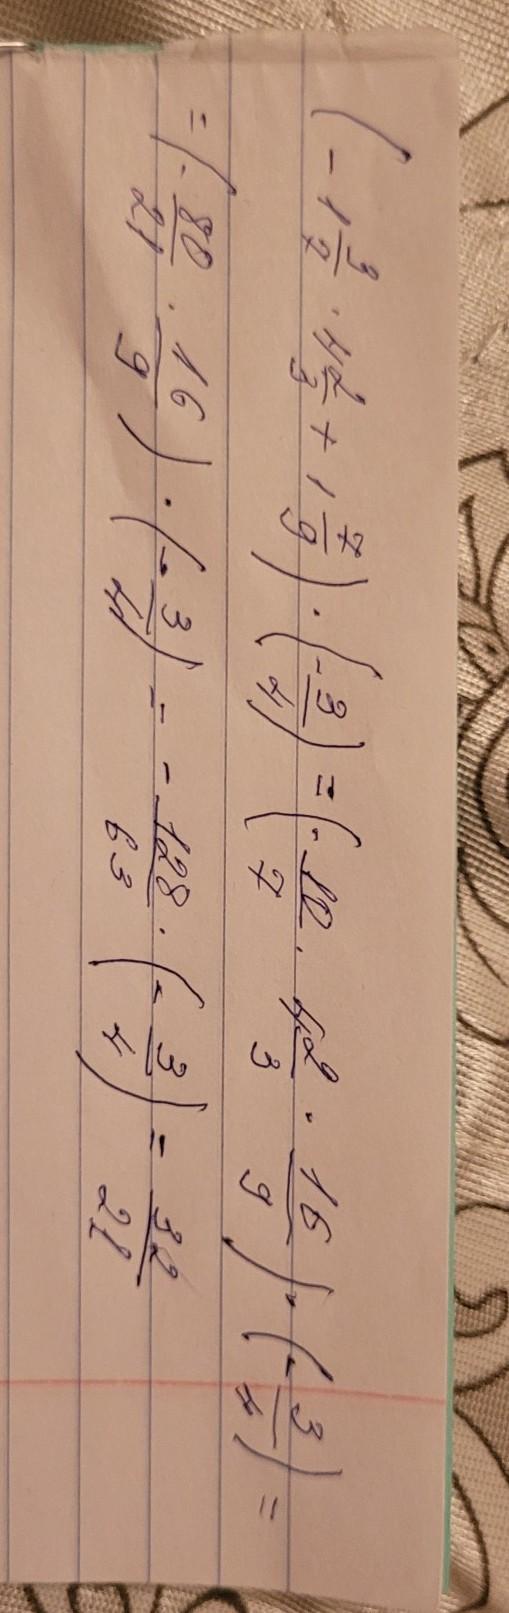 (-1 3/7 · 4 2/3 + 1 7/9) · (-3/4) = (-10/7 · 42/3 · 16/9) · (-3/4) =
= (-80/21 · 16/9) · (-3/4) = -128/63 · (-3/4) = 32/21